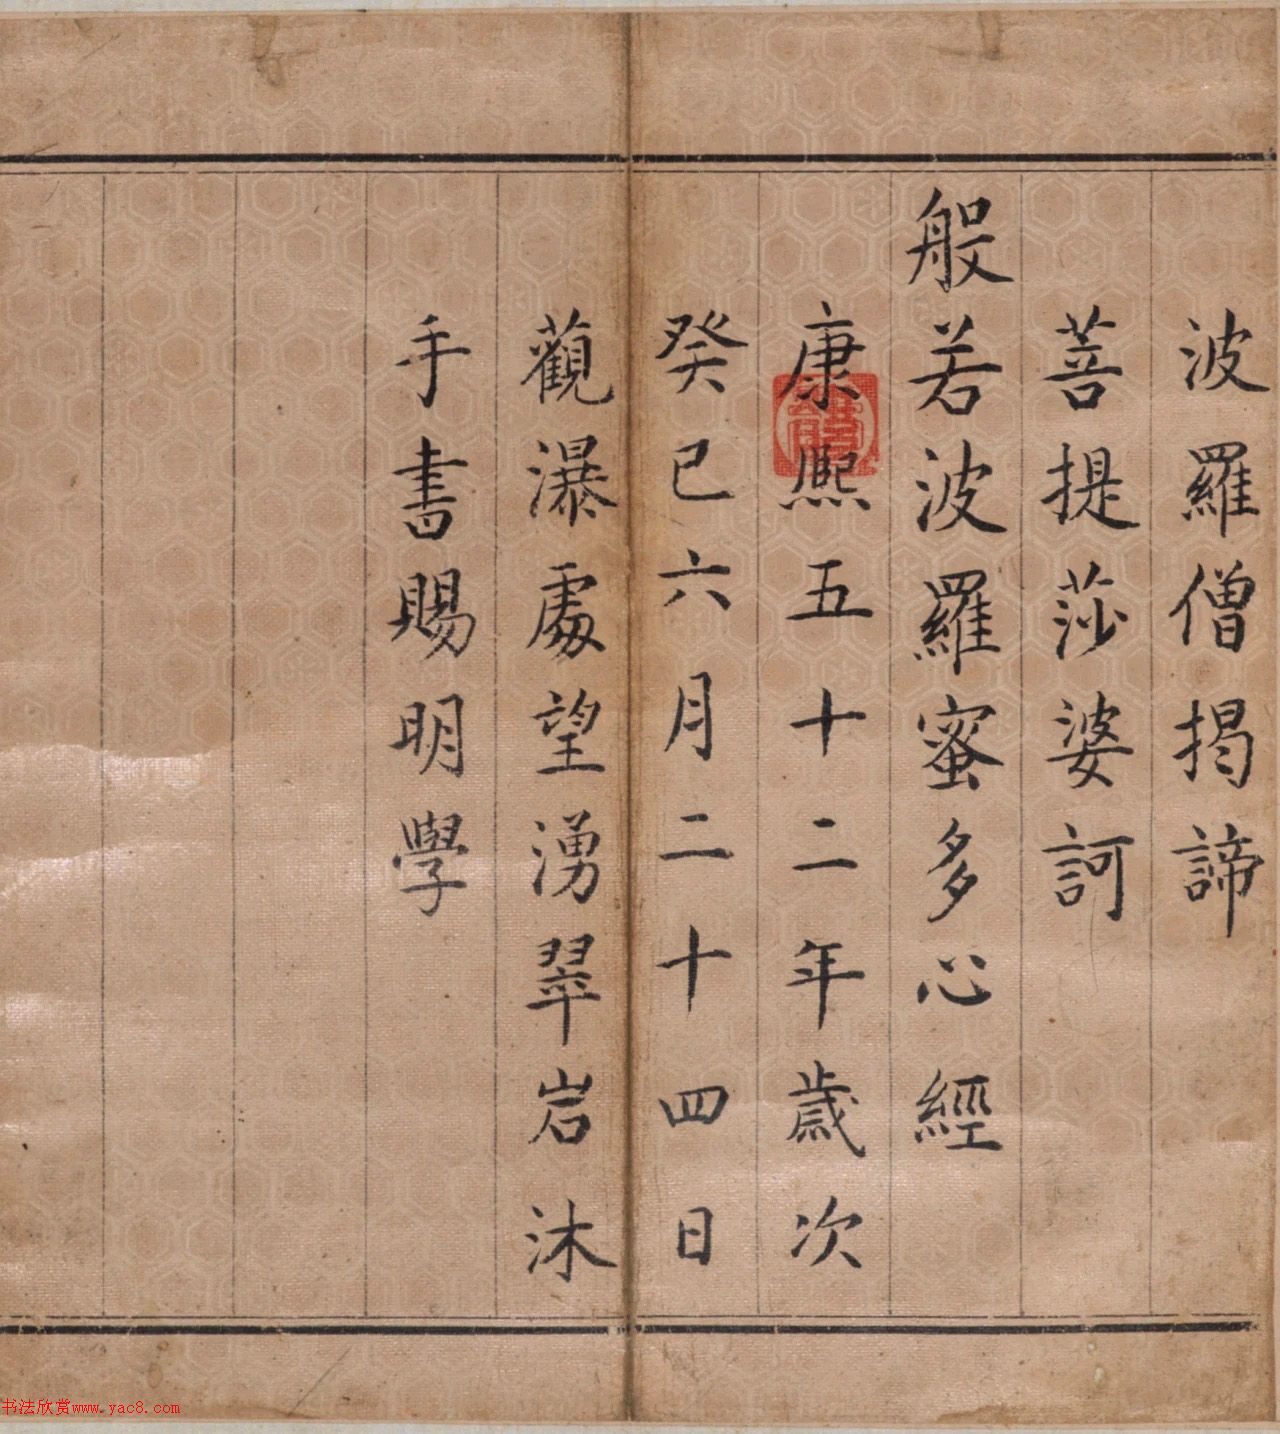 波羅僧揭諦
菩提莎婆訶
般若波羅蜜多心經
康熙五十二年歲次
癸巳六月二十四日
觀瀑處望湧翠岩沐
手書賜明學
书法欣赏www.yac8.com